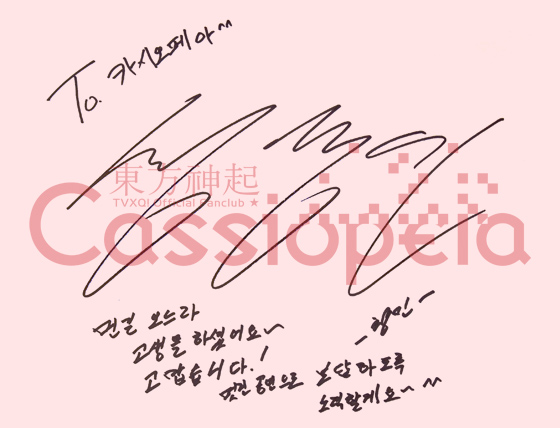 To. 카시오페아^^
東方神起
TVXQ! Official Fanclub ★
Cassiopeia
먼길 오느라
고생들 하셨어요~
고맙습니다!
멋진 공연으로 보답하도록
노력할게요~^^